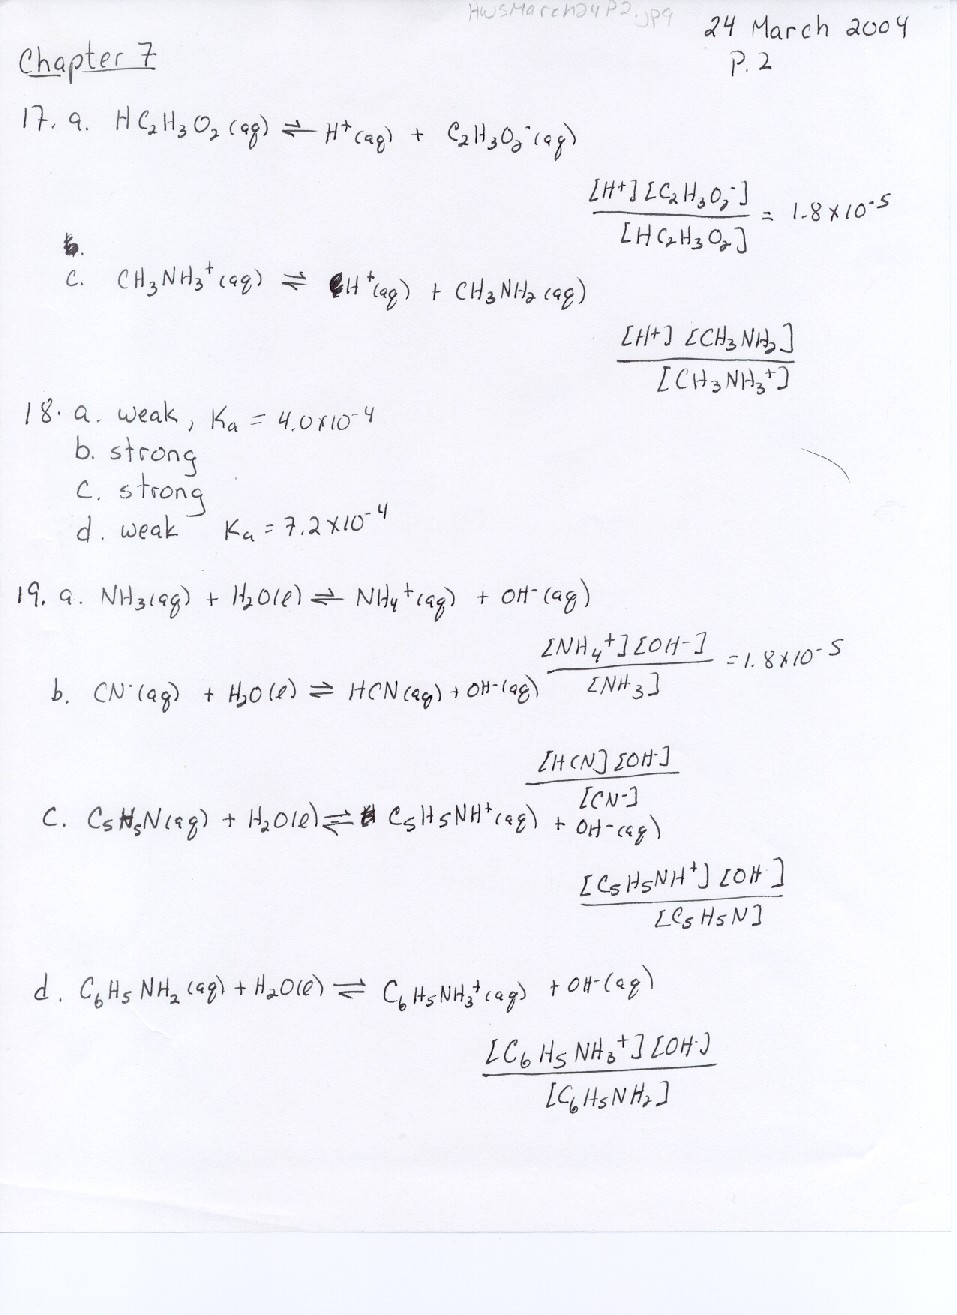 HWSMarch24P2.jpg
24 March 2004
P. 2
Chapter 7
17. a. HC₂H₃O₂ (aq) ⇌ H⁺(aq) + C₂H₃O₂⁻(aq)
[H⁺] [C₂H₃O₂⁻]
= 1.8 x 10⁻⁵
[HC₂H₃O₂]
b.
c. CH₃NH₃⁺(aq) ⇌ H⁺(aq) + CH₃NH₂ (aq)
[H⁺] [CH₃NH₂]
[CH₃NH₃⁺]
18. a. weak, Ka = 4.0x10⁻⁴
b. strong
c. strong
d. weak Ka = 7.2 x10⁻⁴
19. a. NH₃(aq) + H₂O(l) ⇌ NH₄⁺(aq) + OH⁻(aq)
[NH₄⁺] [OH⁻]
= 1.8x10⁻⁵
[NH₃]
b. CN⁻(aq) + H₂O(l) ⇌ HCN(aq) + OH⁻(aq)
[HCN] [OH⁻]
[CN⁻]
c. C₅H₅N(aq) + H₂O(l) ⇌ C₅H₅NH⁺(aq) + OH⁻(aq)
[C₅H₅NH⁺] [OH⁻]
[C₅H₅N]
d. C₆H₅NH₂(aq) + H₂O(l) ⇌ C₆H₅NH₃⁺(aq) + OH⁻(aq)
[C₆H₅NH₃⁺] [OH⁻]
[C₆H₅NH₂]